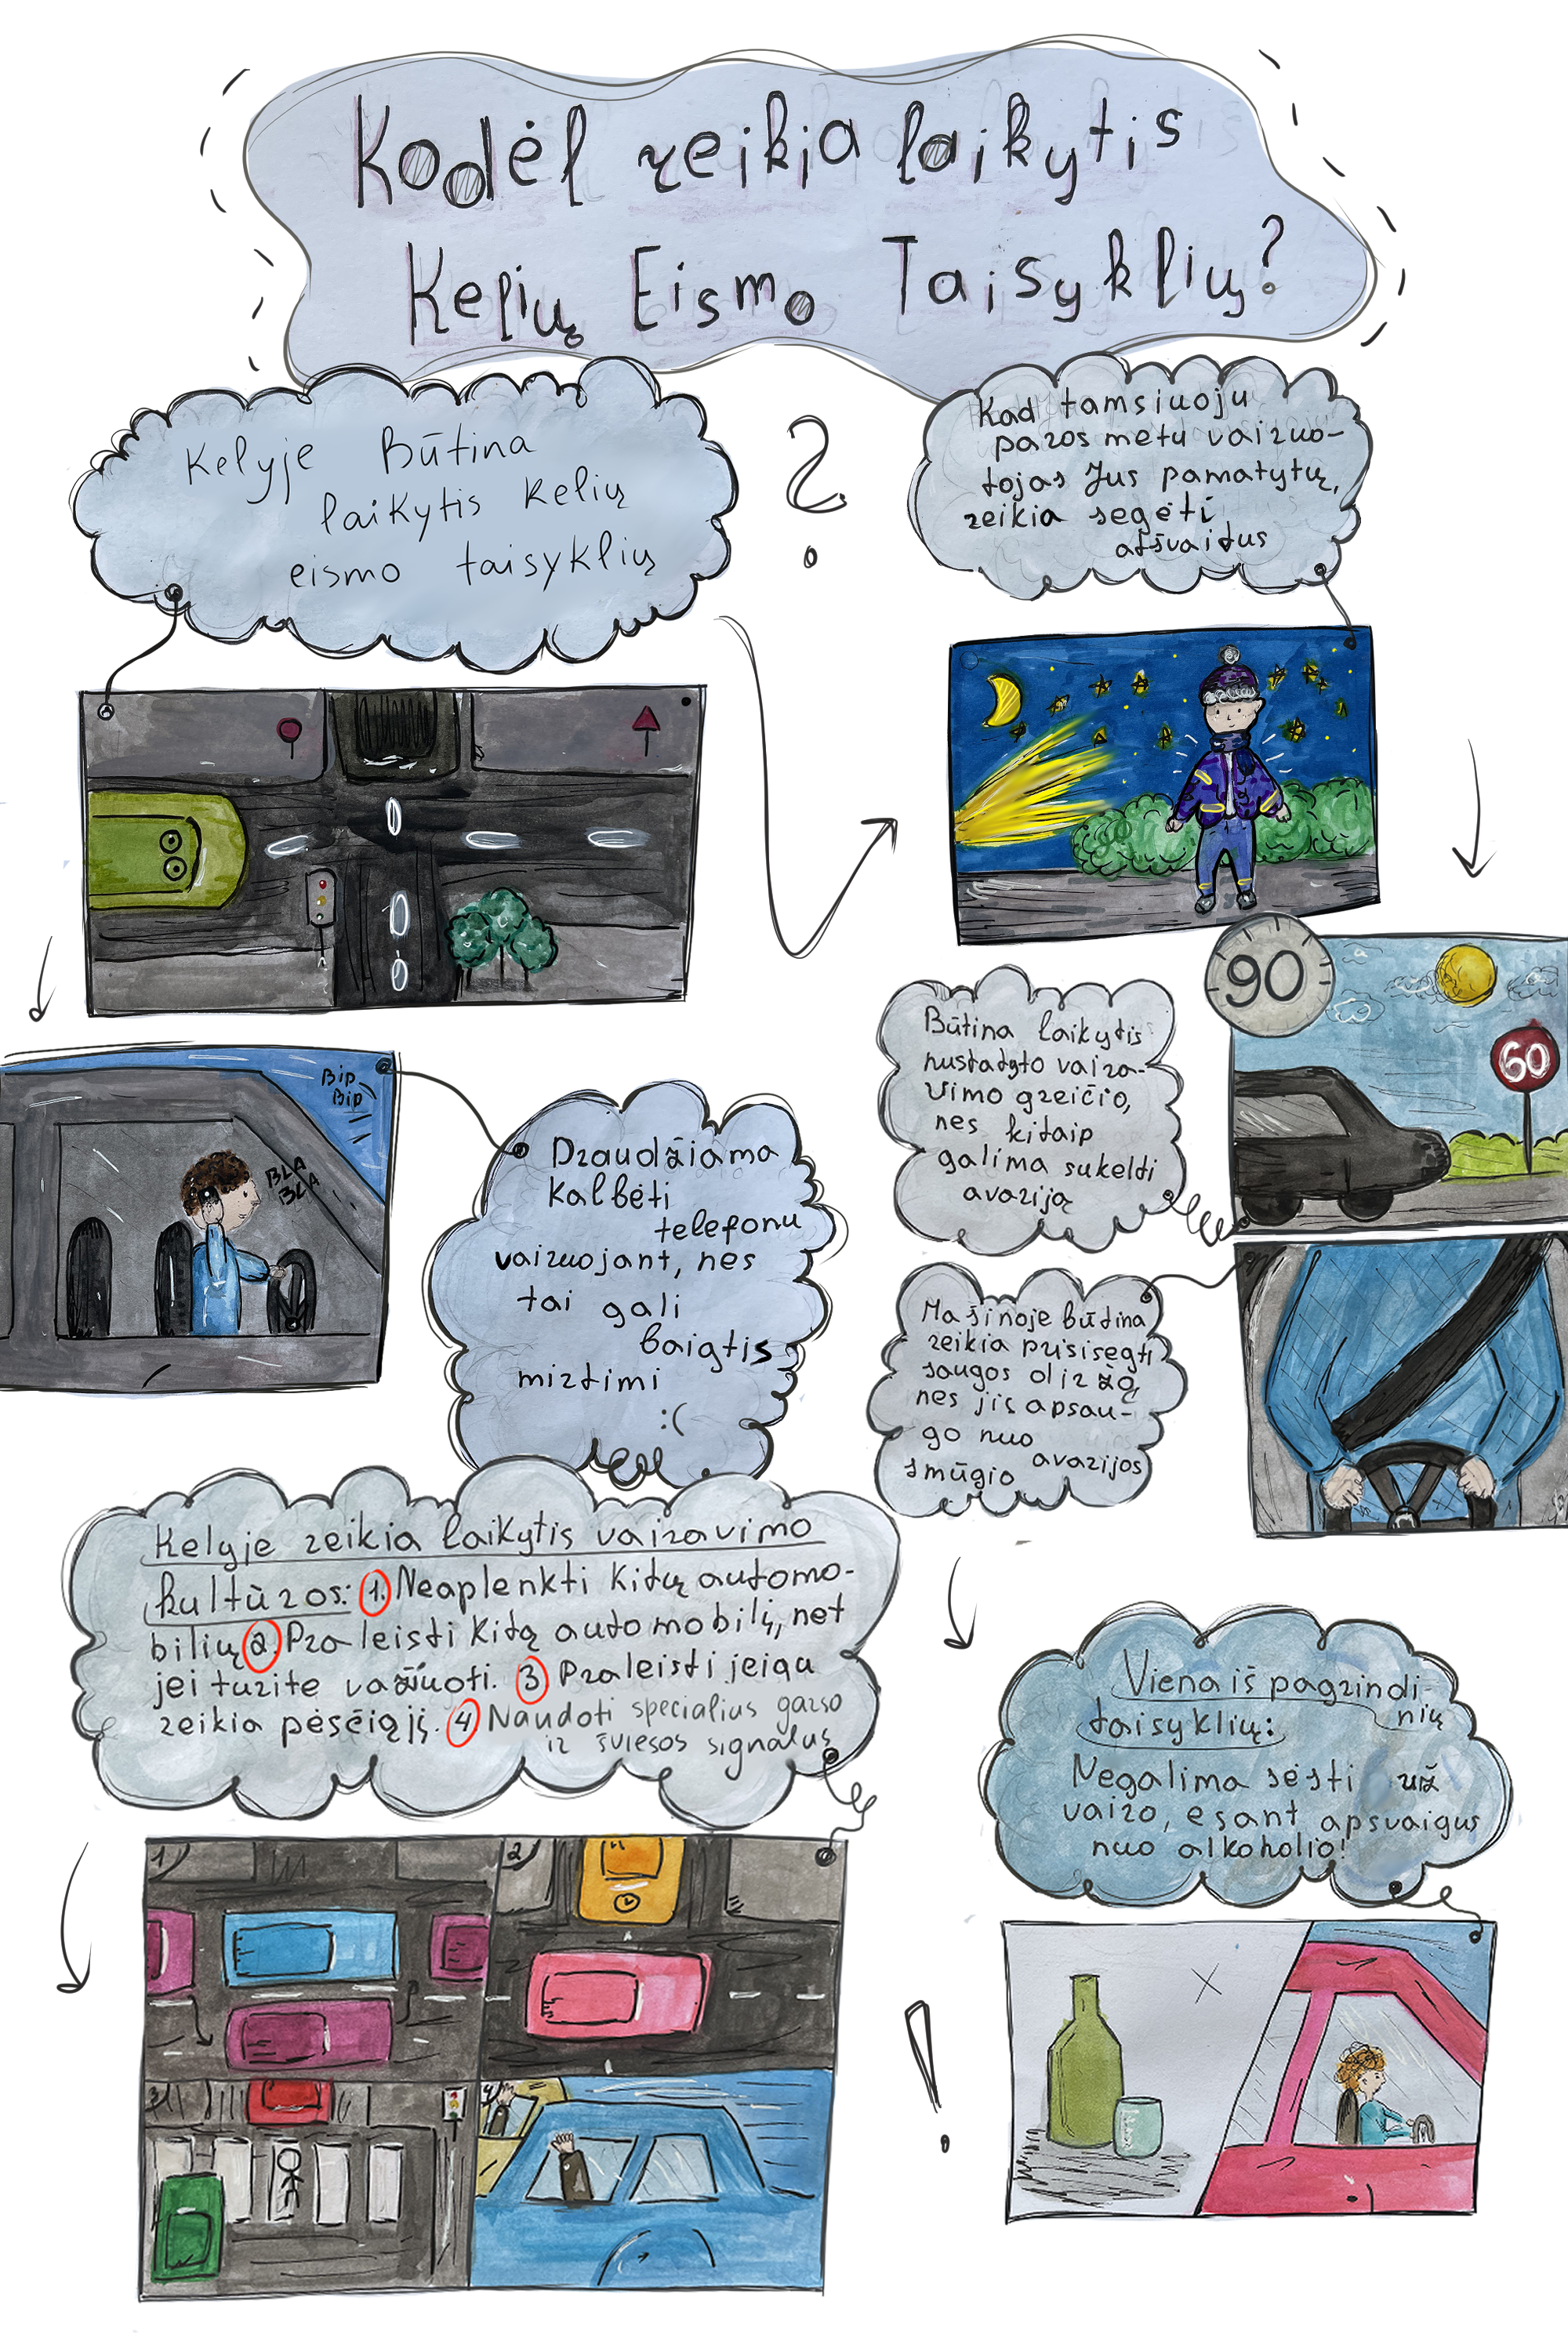 Kodėl reikia laikytis
Kelių Eismo Taisyklių?
Kelyje Būtina
laikytis kelių
eismo taisyklių
?
Kad tamsiuoju
paros metu vairuo-
tojas Jus pamatytų,
reikia segėti
atšvaitus
90
60
Būtina laikytis
nustatyto vaira-
vimo greičio,
nes kitaip
galima sukelti
avariją
Bip
Bip
BLA
BLA
Draudžiama
kalbėti
telefonu
vairuojant, nes
tai gali
baigtis
mirtimi
:(
Mašinoje būtina
reikia prisisegti
saugos diržą,
nes jis apsau-
go nuo
avarijos
smūgio
Kelyje reikia laikytis vairavimo
kultūros: 1. Neaplenkti kitų automo-
bilių 2. Praleisti kitą automobilį, net
jei turite važiuoti. 3 Praleisti jeigu
reikia pėsčiąjį. 4 Naudoti specialius garso
ir šviesos signalus
1)
2)
3)
4)
Viena iš pagrindi-
nių
taisyklių:
Negalima sėsti už
vairo, esant apsvaigus
nuo alkoholio!
!